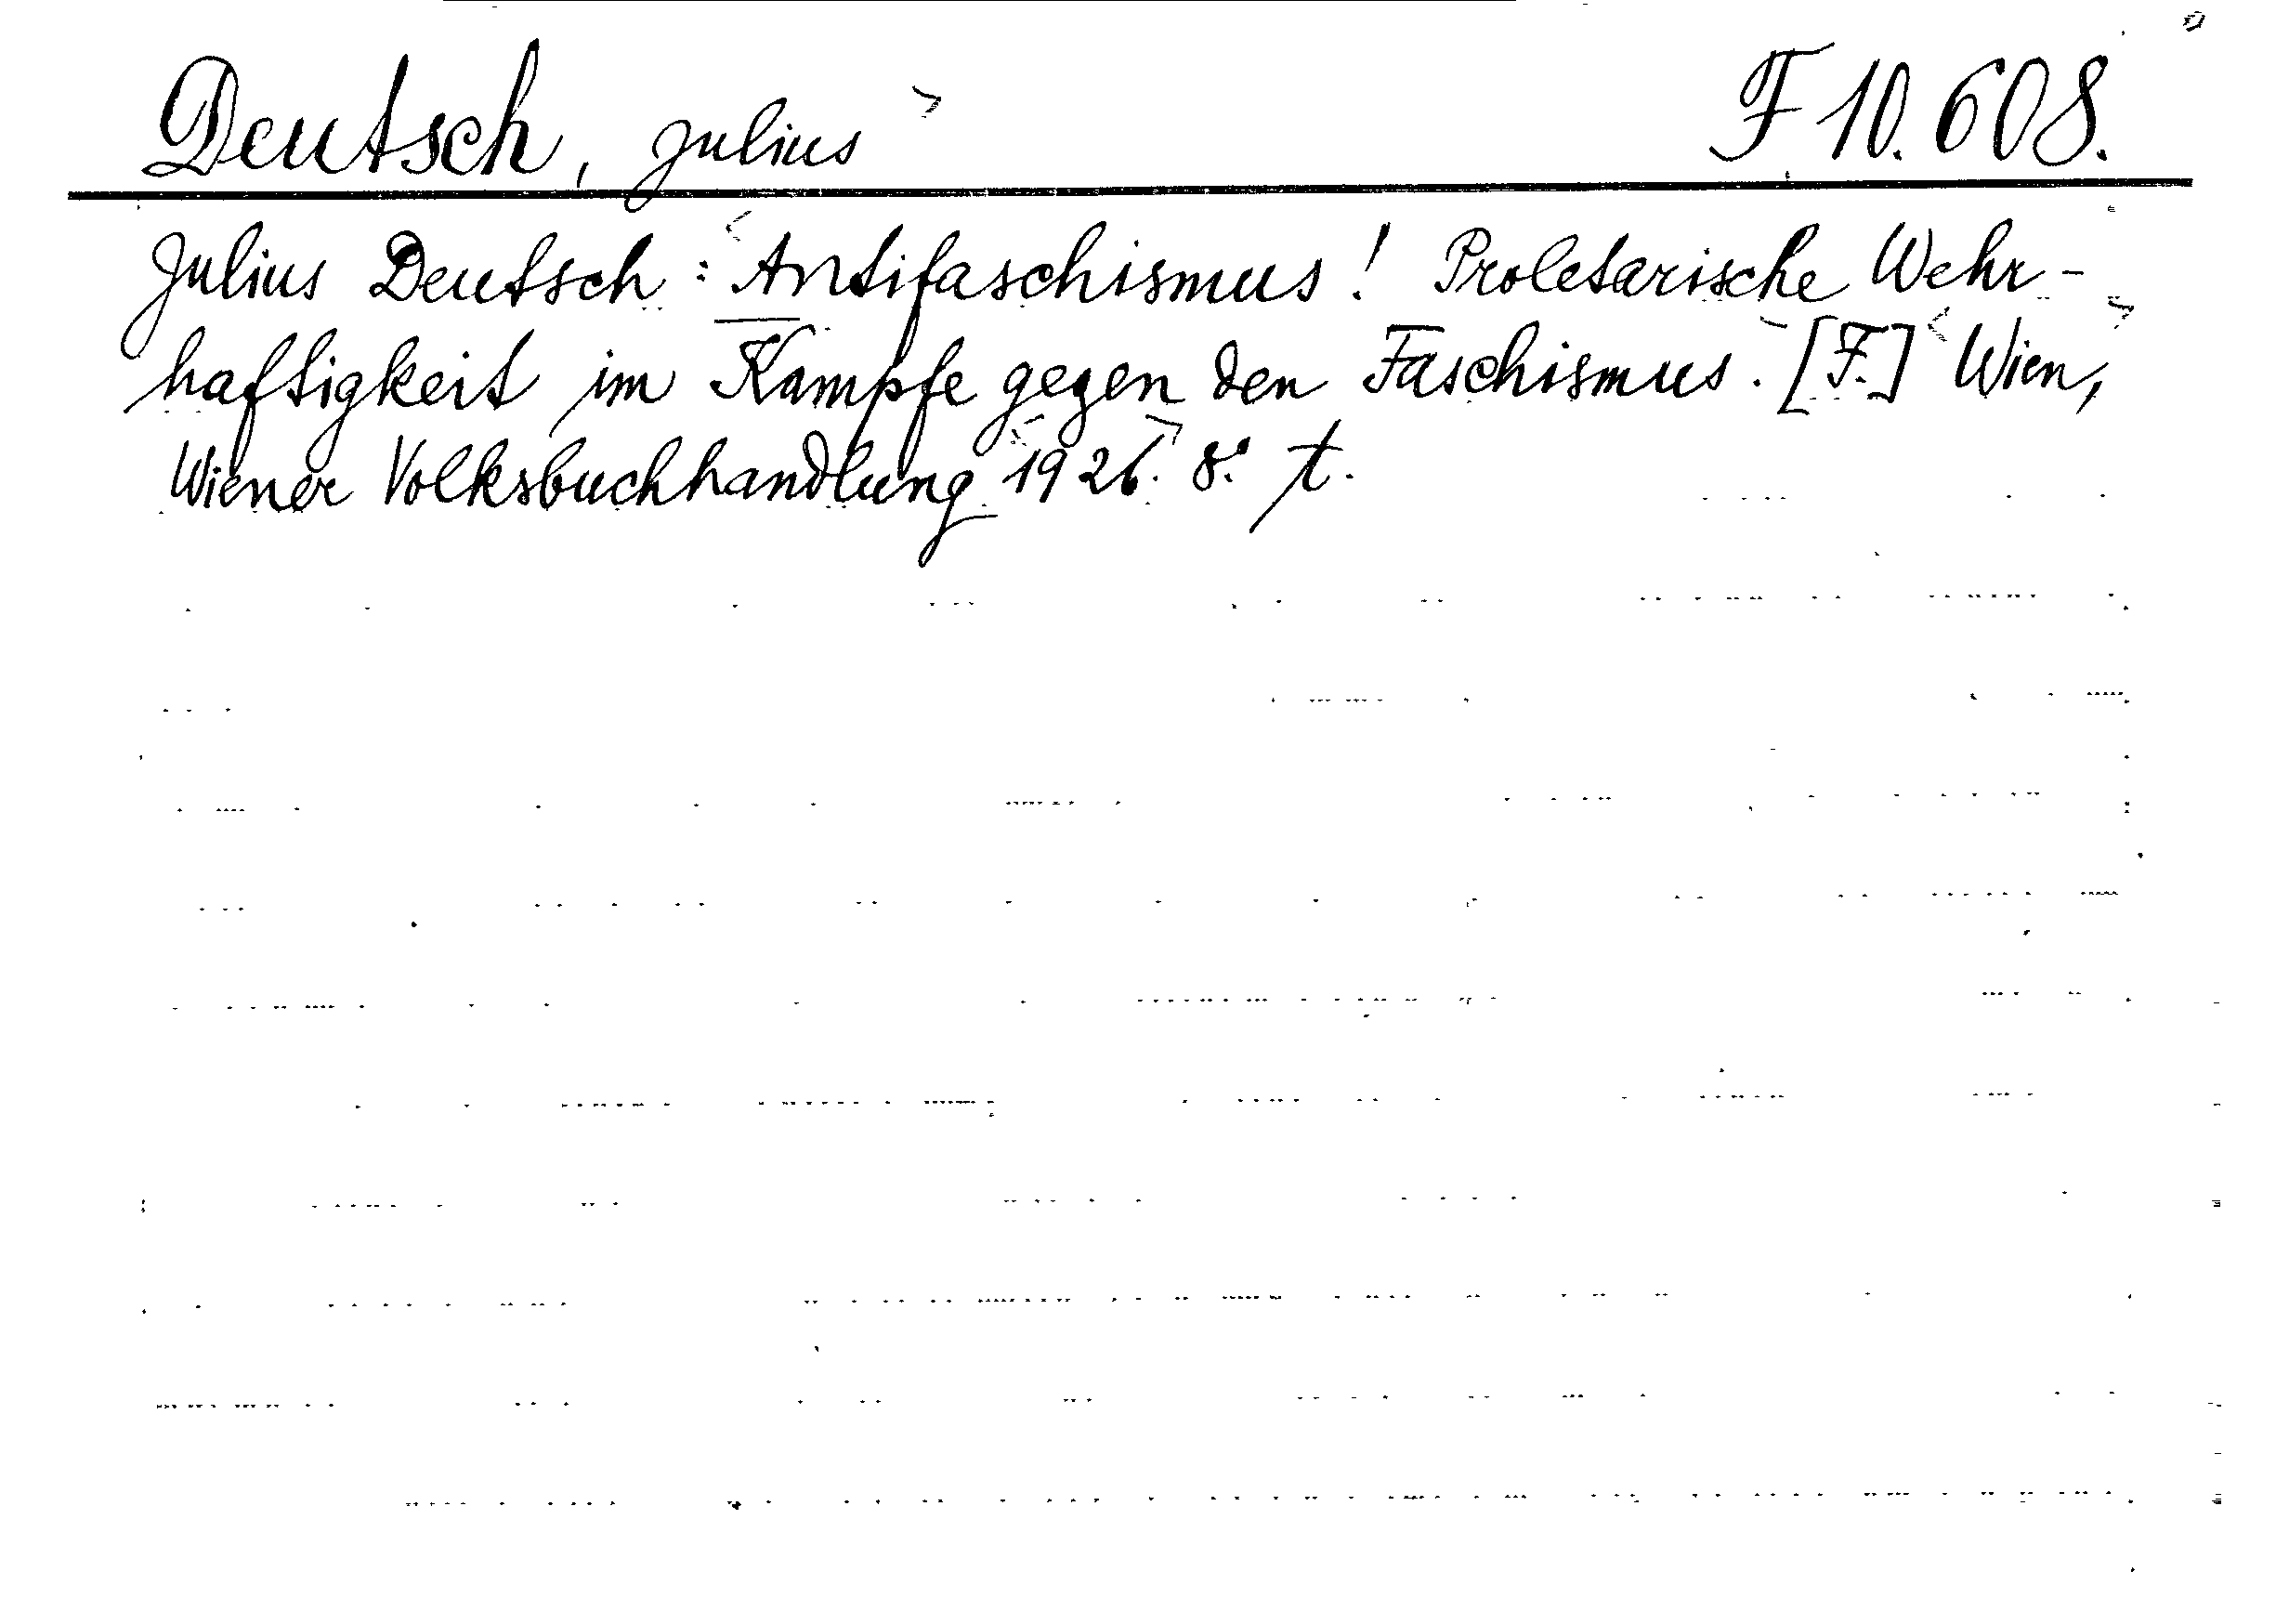 Deutsch, Julius F 10.608.
Julius Deutsch: Antifaschismus! Proletarische Wehr-
haftigkeit im Kampfe gegen den Faschismus. [F.] Wien,
Wiener Volksbuchhandlung 1926. 8.° t.